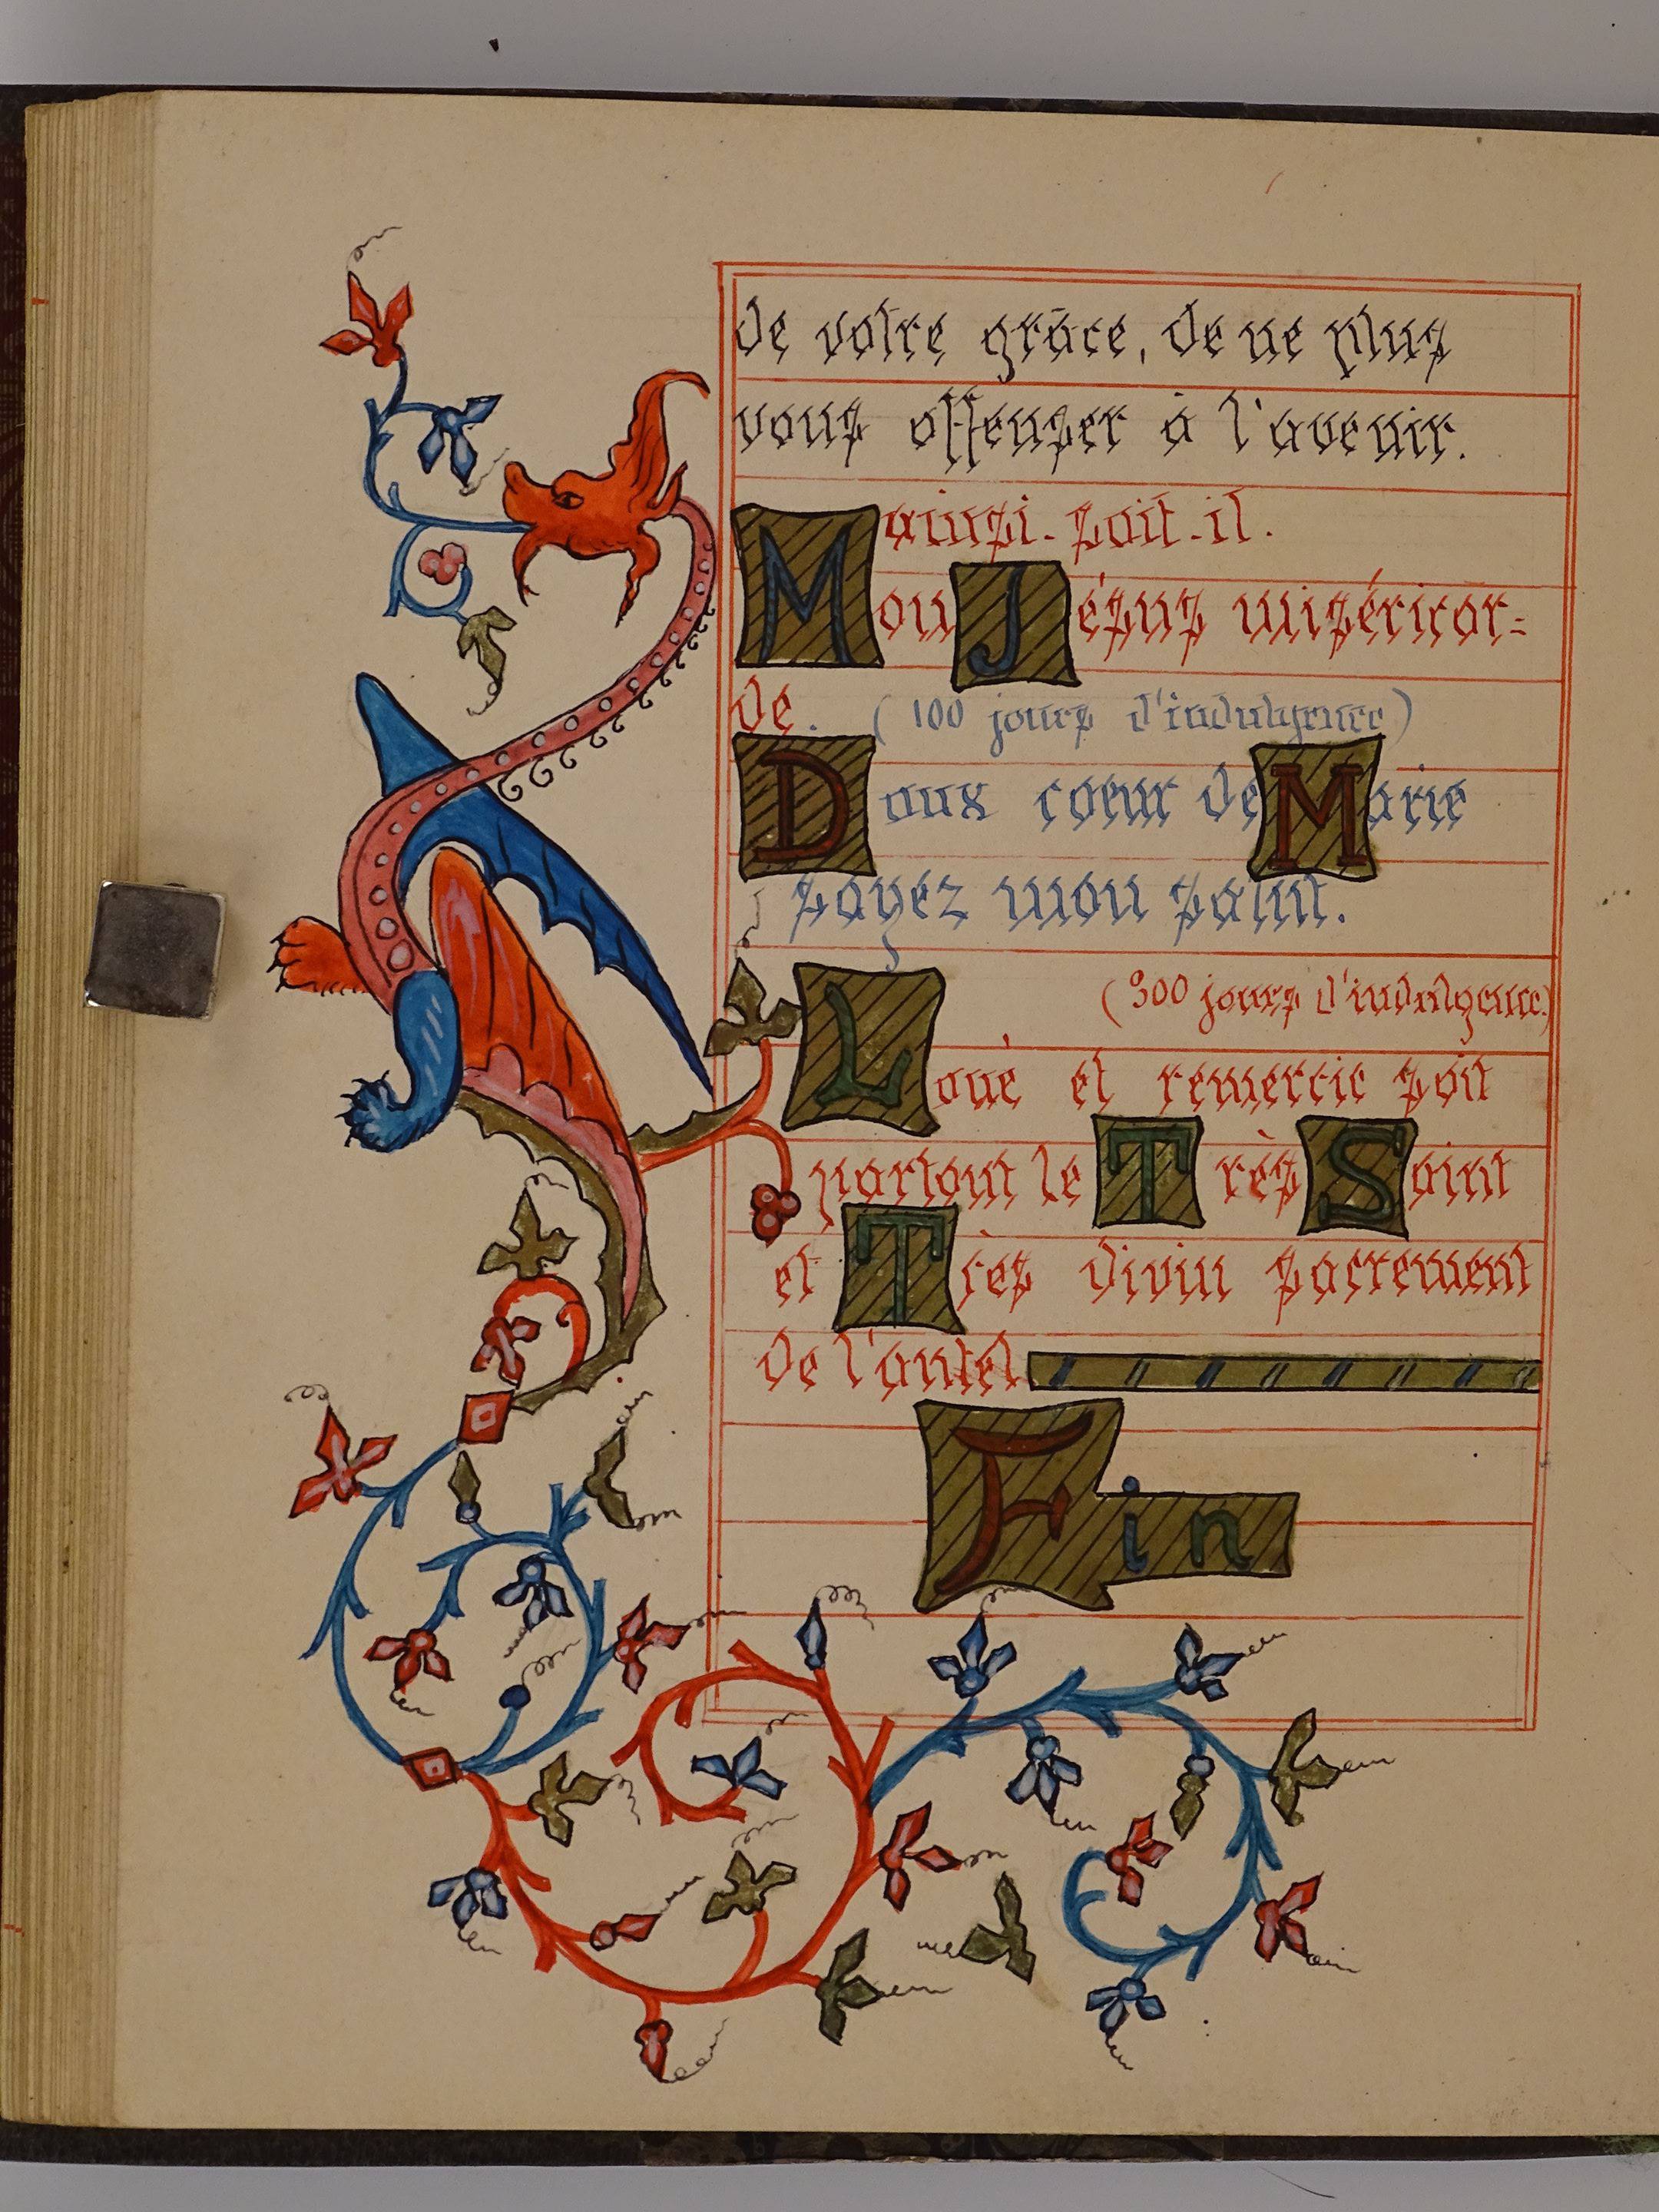 de votre grâce, de ne plus
vous offenser à l'avenir.
ainsi-soit-il.
Mon Jésus miséricor=
de. (100 jours d'indulgence)
Doux cœur de Marie
soyez mon salut.
(300 jours d'indulgence)
Loué et remercié soit
partout le Très Saint
et Très divin sacrement
de l'autel
Fin